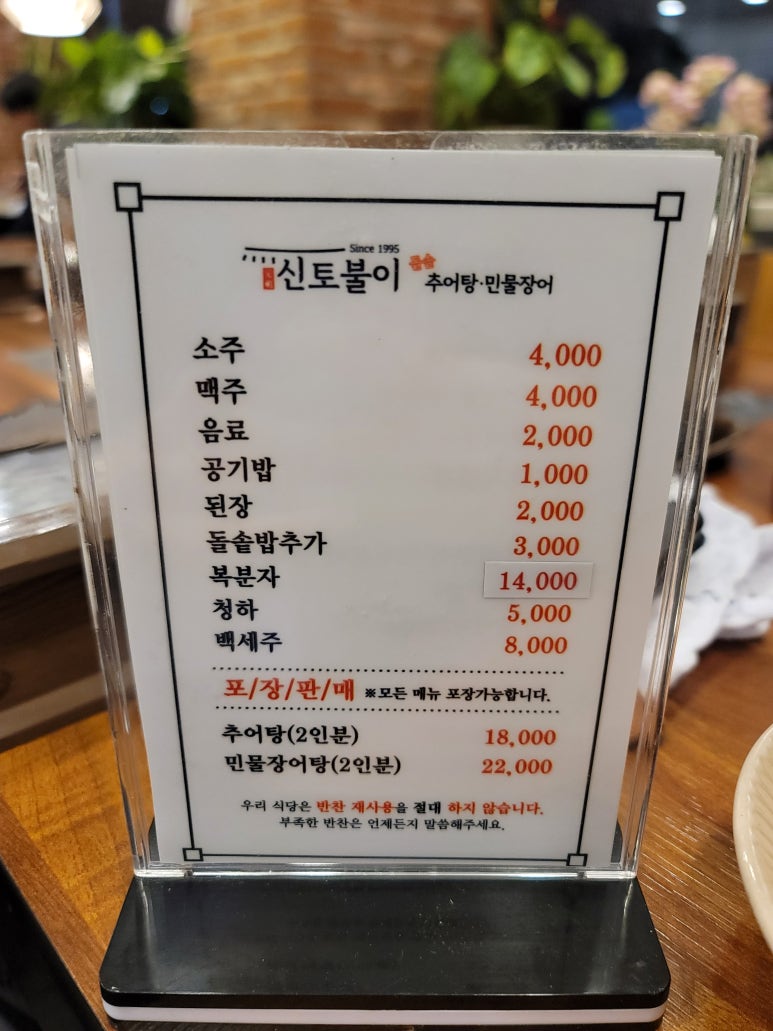 Since 1995
신토불이 돌솥 추어탕·민물장어
소주 4,000
맥주 4,000
음료 2,000
공기밥 1,000
된장 2,000
돌솥밥추가 3,000
복분자 14,000
청하 5,000
백세주 8,000
포/장/판/매 ※모든 메뉴 포장가능합니다.
추어탕(2인분) 18,000
민물장어탕(2인분) 22,000
우리 식당은 반찬 재사용을 절대 하지 않습니다.
부족한 반찬은 언제든지 말씀해주세요.